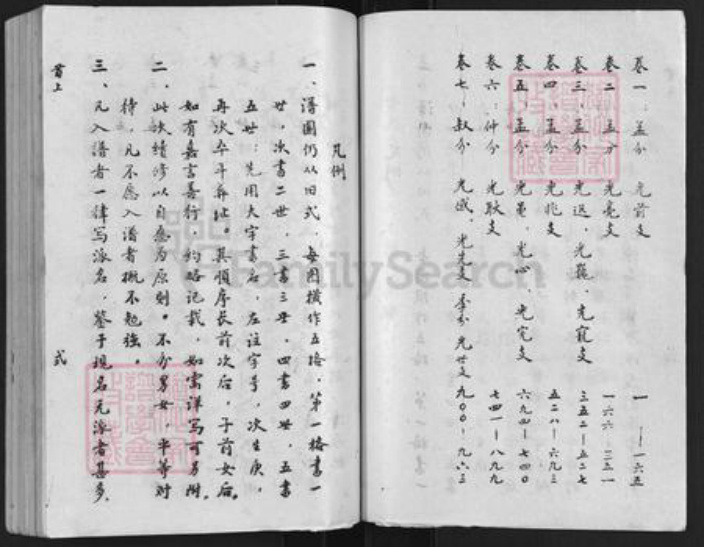 卷一：孟分 光前支 一——一六五
卷二：孟分 光亮支 一六六——三五一
卷三：孟分 光迟、光寵支 三五二——五二七
卷四：孟分 光兆支 五二八——六九三
卷五：孟分 光冕、光心、光完支 六九四——七四〇
卷六：仲分 光耿支 七四一——八九九
卷七：叔分 光彧、光先支 季分 光世支 九〇〇——九六三
凡例
一、譜圖仍从旧式，每图横作五格，第一格書一
世，次書二世，三書三世，四書四世，五書
五世；先用大字書名，左註字号，次生庚，
再次卒年葬址。其順序長前次后，子前女后。
如有嘉言善行，约略记载，如需详写可另附。
二、此次續修以自愿为原则。不分男女，平等对
待，凡不愿入譜者概不勉強。
三、凡入譜者一律写派名，鉴于現名无派者甚多，
首上 式
FamilySearch